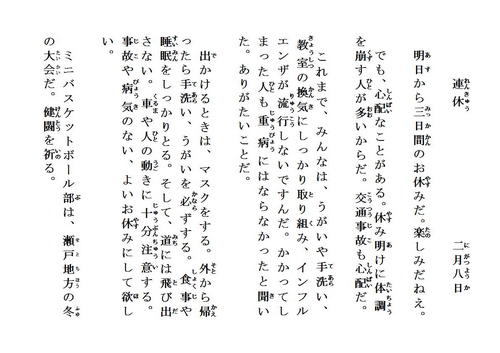 連休　　　　　　二月八日
　明日から三日間のお休みだ。楽しみだねえ。
　でも、心配なことがある。休み明けに体調
を崩す人が多いからだ。交通事故も心配だ。
　これまで、みんなは、うがいや手洗い、
教室の換気にしっかり取り組み、インフル
エンザが流行しないですんだ。かかってし
まった人も重病にはならなかったと聞い
た。ありがたいことだ。
　出かけるときは、マスクをする。外から帰
ったら手洗い、うがいを必ずする。食事や
睡眠をしっかりとる。そして、道には飛び出
さない。車や人の動きに十分注意する。
事故や病気のない、よいお休みにして欲し
い。
　ミニバスケットボール部は、瀬戸地方の冬
の大会だ。健闘を祈る。